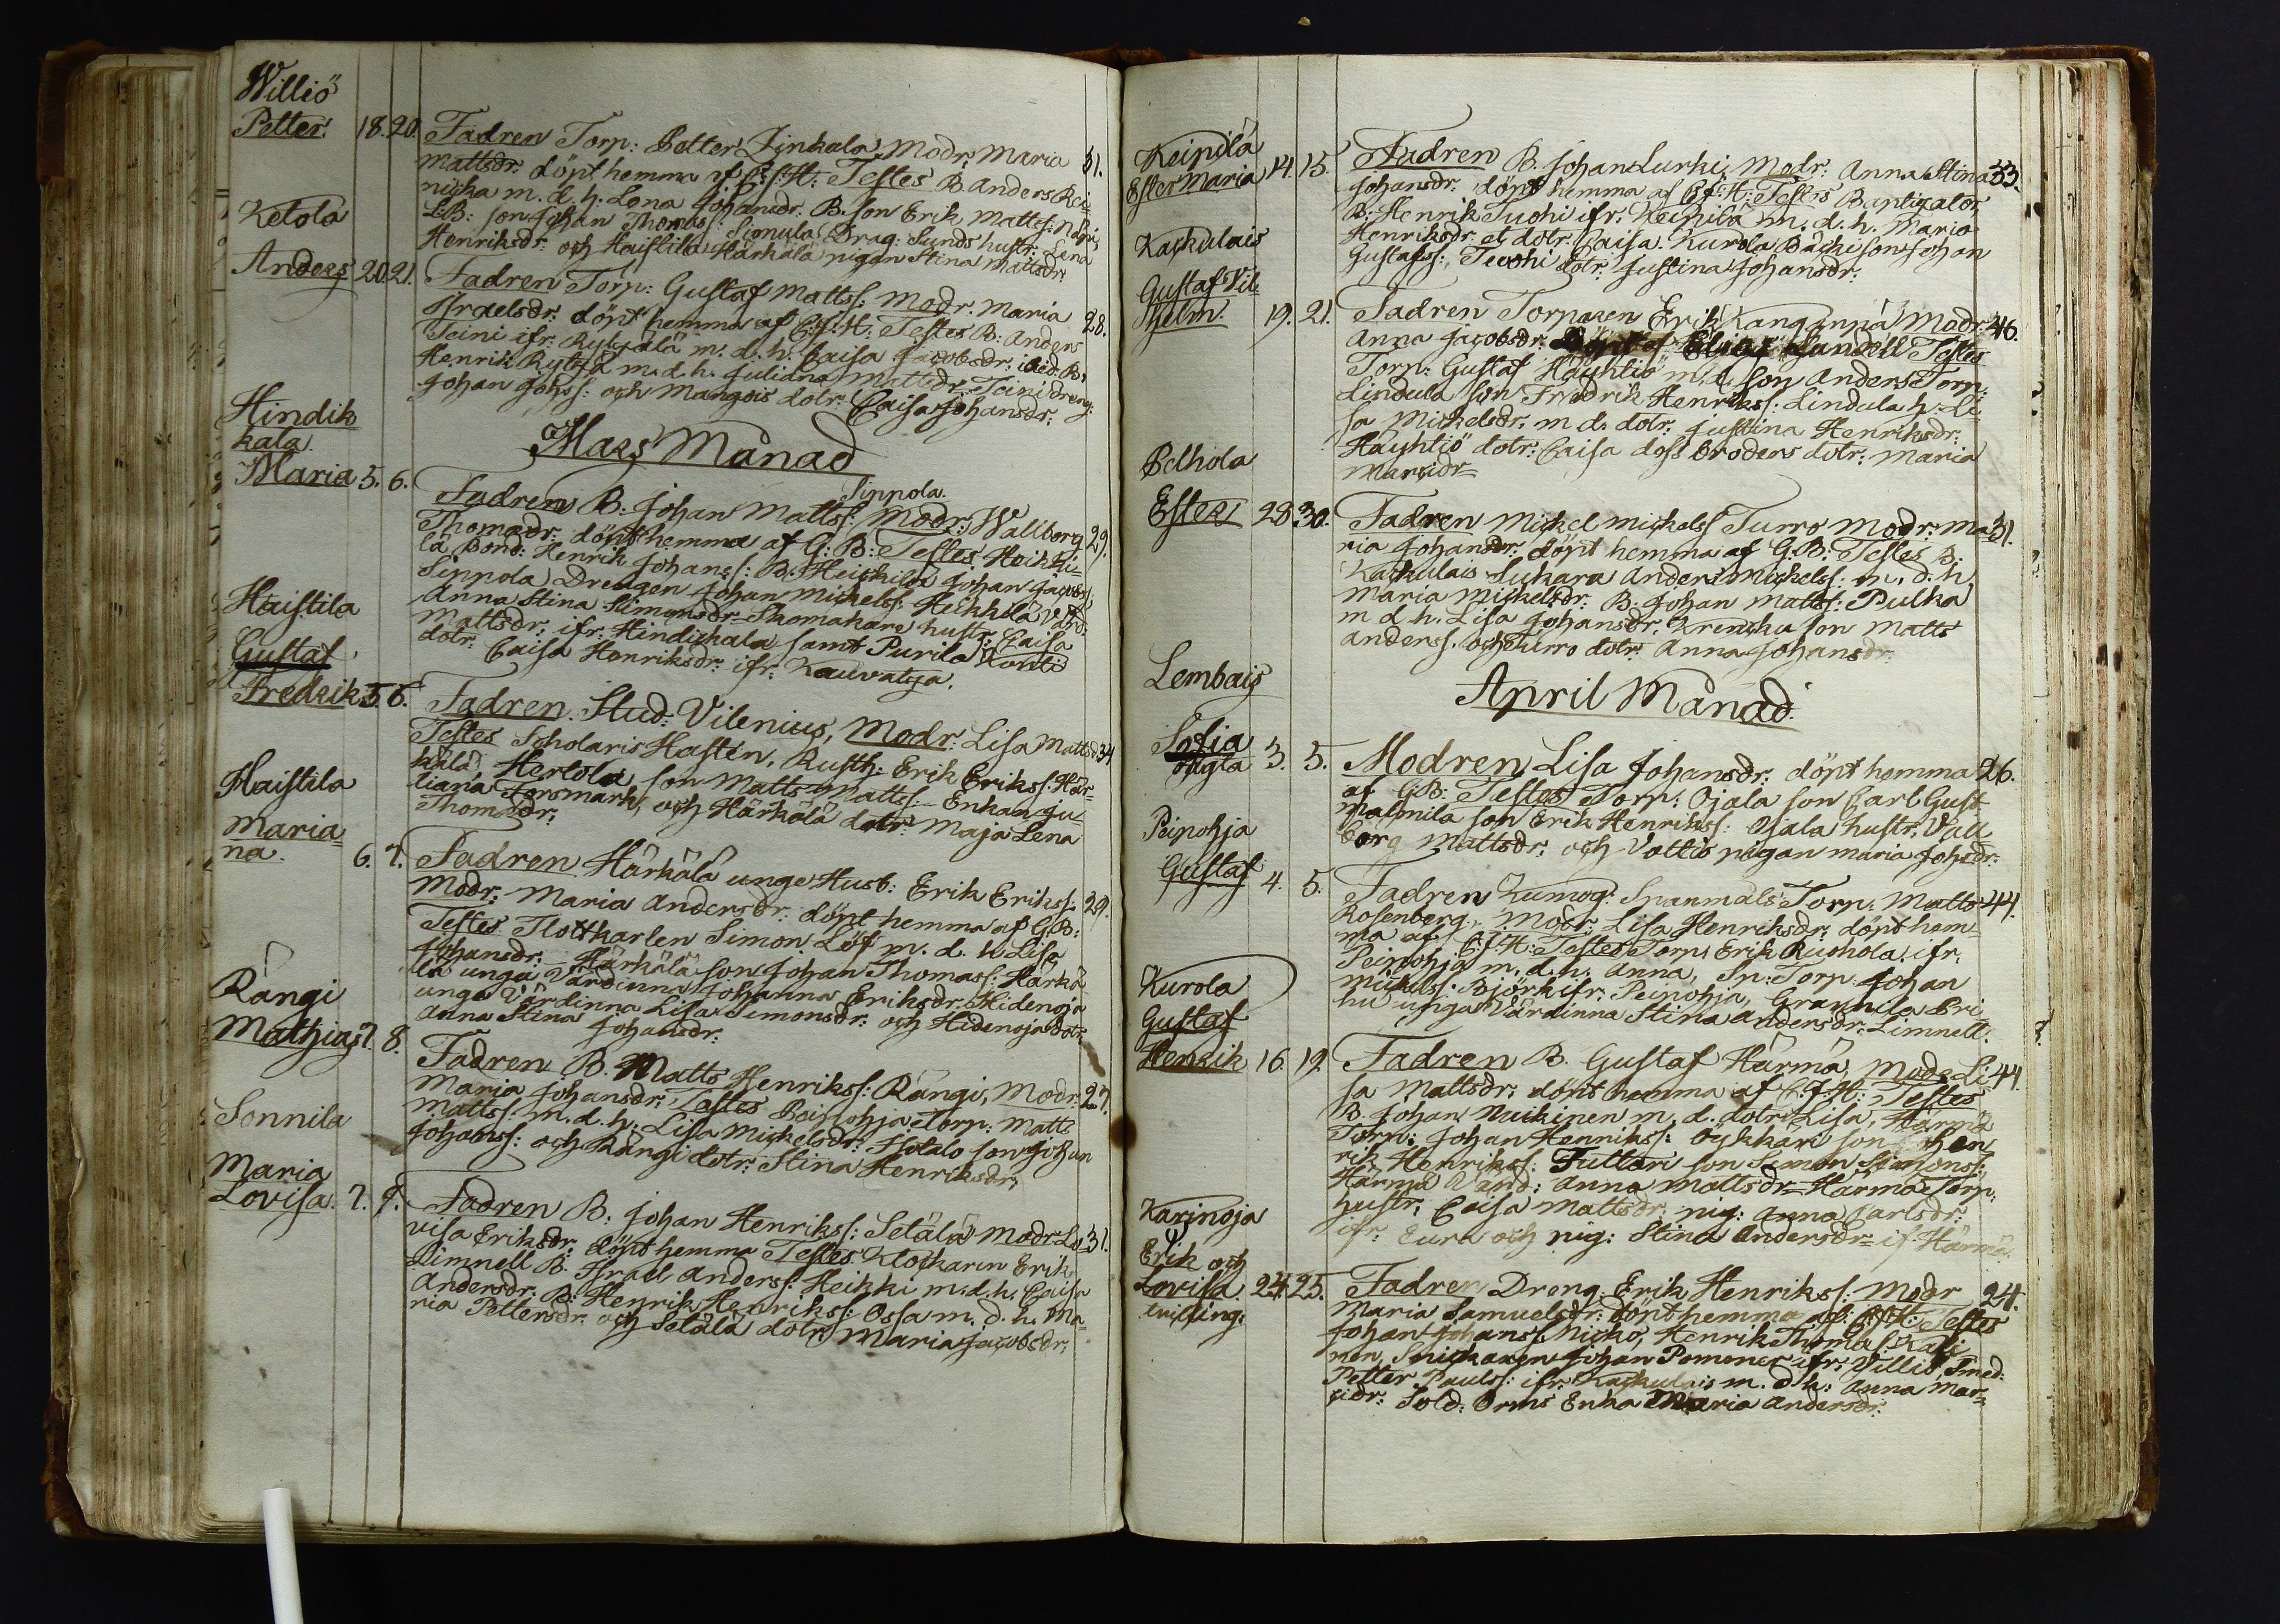 Williö
Petter. 18. 20. Fadren Torp: Petter Linkala Modr: Maria 31.
Mattsdr: döpt hemma af C.J.H: Testes B. Anders Rei-
nicka m. d. h. Lena Johansdr. B. son Erik Mattss:
L.B: son Johan Thomass: Simula Drag: Sunds hustr: Lena
Henriksdr: och Haistila Härkälä pigan Stina Mattsdr:
Ketola
Anders 20. 21. Fadren Torp: Gustaf Mattss: Modr. Maria 28.
Israelsdr: döpt hemma af C.J.H. Testes B: Anders
Teini ifr. Rytsälä m. d. h. Caisa Jacobsdr: ibid. B:
Henrik Rytsä m. d. h. Juliana Mattsdr: Teini dreng:
Johan Johss: och Mangois dotr: Caisa Johansdr:
Mars Månad
Hindik
kala
Sippola.
Maria 5. 6. Fadren B. Johan Mattss: Modr: Wallborg 29.
Thomasdr: döpt hemma af G: B: Testes Heikki-
lä Bond: Henrik Johanss: B. Heickilä Johan Jacobss:
Sippola Drengen Johan Mickelss: Heikkilä Värd:
Anna Stina Simonsdr: Skomakare hustr: Caisa
Mattsdr: ifr: Hindickala samt Purila Konti
dotr: Caisa Henriksdr: ifr: Kauvatsa.
Haistila
Gustaf
Fredrik 5. 6. Fadren Stud: Vilenius, Modr: Lisa Mattsd: 34
Testes Scholaris Hasten, Rusth: Erik Erikss: Här-
kälä Hertola son Matts Mattss: Enkan Ju-
liana Forsmark, och Härkälä dotr: Maja Lena
Thomasdr:
Haistila
Maria-
na. 6. 7. Fadren Härkälä unge Husb: Erik Erikss: 29.
Modr: Maria Andersdr: döpt hemma af G.B:
Testes Flottkarlen Simon Löf m. d. h. Lisa
Johansdr: Härkälä son Johan Thomass: Härkä-
lä unga Värdinna Johanna Eriksdr: Hidenoja
unga Värdinna Lisa Simonsdr: och Hidenoja dotr:
Anna Stina Johansdr:
Rängi
Mathias 7. 8. Fadren B. Matts Henrikss: Rängi, Modr: 27.
Maria Johansdr: Testes Paipohja Torp: Matts
Mattss: m. d. h: Lisa Mickelsdr: Isotalo son Johan
Johanss: och Rängi dotr: Stina Henriksdr:
Sonnila
Maria
Lovisa. 7. 9. Fadren B: Johan Henrikss: Setälä Modr: Lo- 31.
visa Eriksdr: döpt hemma Testes Klockaren Erik
Limnell B. Israel Anderss: Heikki m. d. h. Caisa
Andersdr: B: Henrik Henrikss: Ossa m. d. h. Ma-
ria Pettersdr: och Setälä dotr: Maria Jacobsdr:
Keipilä
Ester Maria 14. 15. Fadren B. Johan Lurki, Modr: Anna Stina 33.
Johansdr: döpt hemma af C.J.H: Testes Baptizator,
B: Henrik Tuohi ifr: Keipilä m. d. h. Maria
Henriksdr. et dotr: Caisa. Kurola Bäcki son Johan
Gustafss:, Tuohi dotr: Justina Johansdr:
Kackulais
Gustaf Vil-
helm. 19. 21. Fadren Torparen Erik Kangänpä Modr: 46.
Anna Jacobsdr: Döpt af Elias Landell Testes
Torp: Gustaf Häyhtiö m. d. son Anders Torp:
Lindula son Fredrik Henrikss: Lindula h: Li-
sa Mickelsdr. m. d. dotr. Justina Henriksdr:
Häyhtiö dotr: Caisa dess broders dotr: Maria
Marcidr=
Pelhola
Ester 28. 30. Fadren Mickel Mickelss: Turro Modr: Ma- 31.
ria Johansdr: döpt hemma af G.B: Testes B.
Kackulais Lukara Anders Mickelss: m. d. h.
Maria Mickelsdr: B. Johan Mattss: Pulka
m d. h. Lisa Johansdr: Krenchu son Matts
Anderss. och Turro dotr: Anna Johansdr:
April Månad.
Lembais
Sofia
oägta 3. 5. Modren Lisa Johansdr. döpt hemma 26.
af G.B: Testes Torp: Ojala son Carl Gust:
Malmila son Erik Henrikss: Ojala hustr. Vall-
borg Mattsdr: och Vottis pigan Maria Johsdr:
Peipohja
Gustaf 4. 5. Fadren Kumog: Spanmåls Torp: Matts 44.
Rosenberg, Modr: Lisa Henriksdr: döpt hem-
ma af C.J.H: Testes Torp: Erik Ruohola ifr.
Peipohja m. d. h. Anna, Sp. Torp. Johan
Mickelss: Björk ifr. Peipohja, Grannila Eri-
hu unga Värdinna Stina Andersdr: Limnell.
Kurola
Gustaf
Henrik 16. 19. Fadren B. Gustaf Härmä, Modr Li- 44.
sa Mattsdr: döpt hemma af C.J.H: Testes
B. Johan Nuikinen m. d. dotr: Lisa, Härmä
Torp: Johan Henrikss: Öykkäri son Hen-
rik Henrikss: Futtari son Simon Simonss:
Härmä Värd: Anna Mattsdr= Härmä Torp:
hustr: Caisa Mattsdr. pig: Anna Carlsdr:
ifr. Eura och pig: Stina Andersdr= if. Härmä.
Karinoja
Erik och
Lovisa 24. 25. Fadren Dreng. Erik Henrikss: Modr 24.
tvilling: Maria Samuelsdr: döpt hemma af: C.J.H: Testes
Johan Johanss: Nicko, Henrik Thomass: Kaki-
nen, Snickaren Johan Pomener ifr: Villiö Smed:
Petter Paulss: ifr. Kackulais m. d. h: Anna Mar-
cidr: Sold: Orms Enka Maria Andersdr: